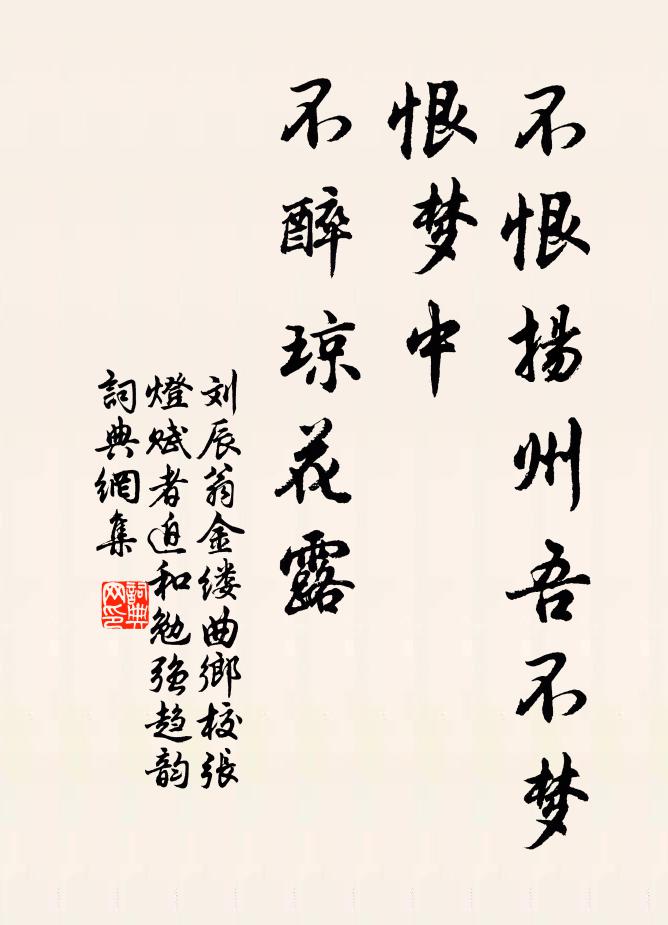 不恨揚州吾不梦
恨梦中
不醉琼花露
刘辰翁金缕曲鄉校張
燈赋者迫和勉强趋韵
詞典網集
詞典网印